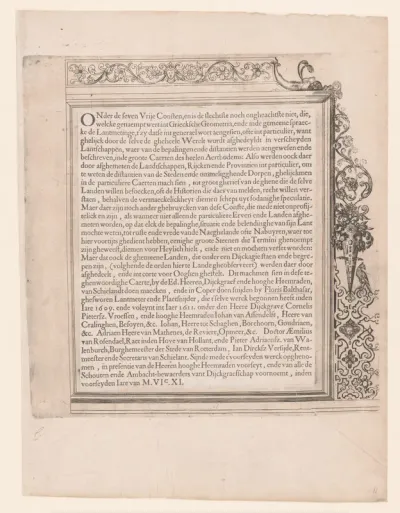 ONder de seven Vrije Consten, en is de slechtste noch ongheachtste niet, die,
welcke genaempt wert int Griecksche Geometria, ende inde gemeene spraec-
ke de Lantmetinge, t'zy datse int generael wort aengesien, ofte int particulier, want
ghelijck door de selve de gheheele Werelt wordt afghedeylt in verscheyden
Lantschappen, waer van de bepalingen ende distantien werden aengewesen ende
beschreven, inde groote Caerten des heelen Aertbodems: Alsoo werden oock daer
door afghemeten de Landtschappen, Rijcken ende Provintien int particulier, om
te weten de distantien van de Steden ende ommeliggende Dorpen, ghelijckmen
in de particuliere Caerten mach sien, tot groot gherief van de ghene die de selve
Landen willen besoecken, oft de Historien die daer van melden, recht willen ver-
staen, behalven de vermaeckelickheyt diemen schept uyt sodanighe speculatie.
Maer daer zijn noch ander ghebruycken van dese Conste, die mede niet onprofij-
telick en zijn, als wanneer niet alleen de particuliere Erven ende Landen afghe-
meten worden, op dat elck de bepalinghe, situatie ende belendinghe van sijn Lant
mochte weten, tot ruste ende vrede vande Naeghelande ofte Nabuyren, waer toe
hier voortijts ghedient hebben, eenighe groote Steenen die Termini ghenoempt
zijn gheweest, diemen voor Heylich hielt, ende niet en mochten verset worden:
Maer dat oock de ghemeene Landen, die onder een Dijckagie sten ende begre-
pen zijn, (volghende de orden hier te Lande gheobserveert) werden daer door
afghedeelt, ende int corte voor Ooghen ghestelt. Dit machmen sien in dese te-
ghenwoordighe Caerte, by de Ed. Heeren, Dijckgraef ende hooghe Heemraden,
van Schielandt doen maecken, ende in Coper doen snijden by Floris Balthasar,
ghesworen Lantmeter ende Plaetsnijder, die t'selve werck begonnen heeft inden
Iare 1609. ende voleynt int Iaer 1611. onder den Heere Dijckgrave Cornelis
Pietersz. Vroesen, ende hooghe Heemraden Iohan van Assendelft, Heer van
Cralinghen, Besoyen, &c. Iohan, Heer tot Schaghen, Borchorn, Goudriaen,
&c. Adriaen Heere van Mathenes, de Riviere, Opmeer, &c. Doctor Æmilius
van Rosendael, Raet inden Hove van Hollant, ende Pieter Adriaensz. van Wa-
lenburch, Burghemeester der Stede van Rotterdam, Ian Dircksz Versijde, Rent-
meester ende Secretaris van Schielant. Sijnde mede t'voorseyden werck opgheno-
men, in presentie van de Heeren hooghe Heemraden voorseyt, ende van alle de
Schouten ende Ambacht-bewaerders vant Dijckgraefschap voornoemt, inden
voorseyden Iaer van M.VIᶜ.XI.